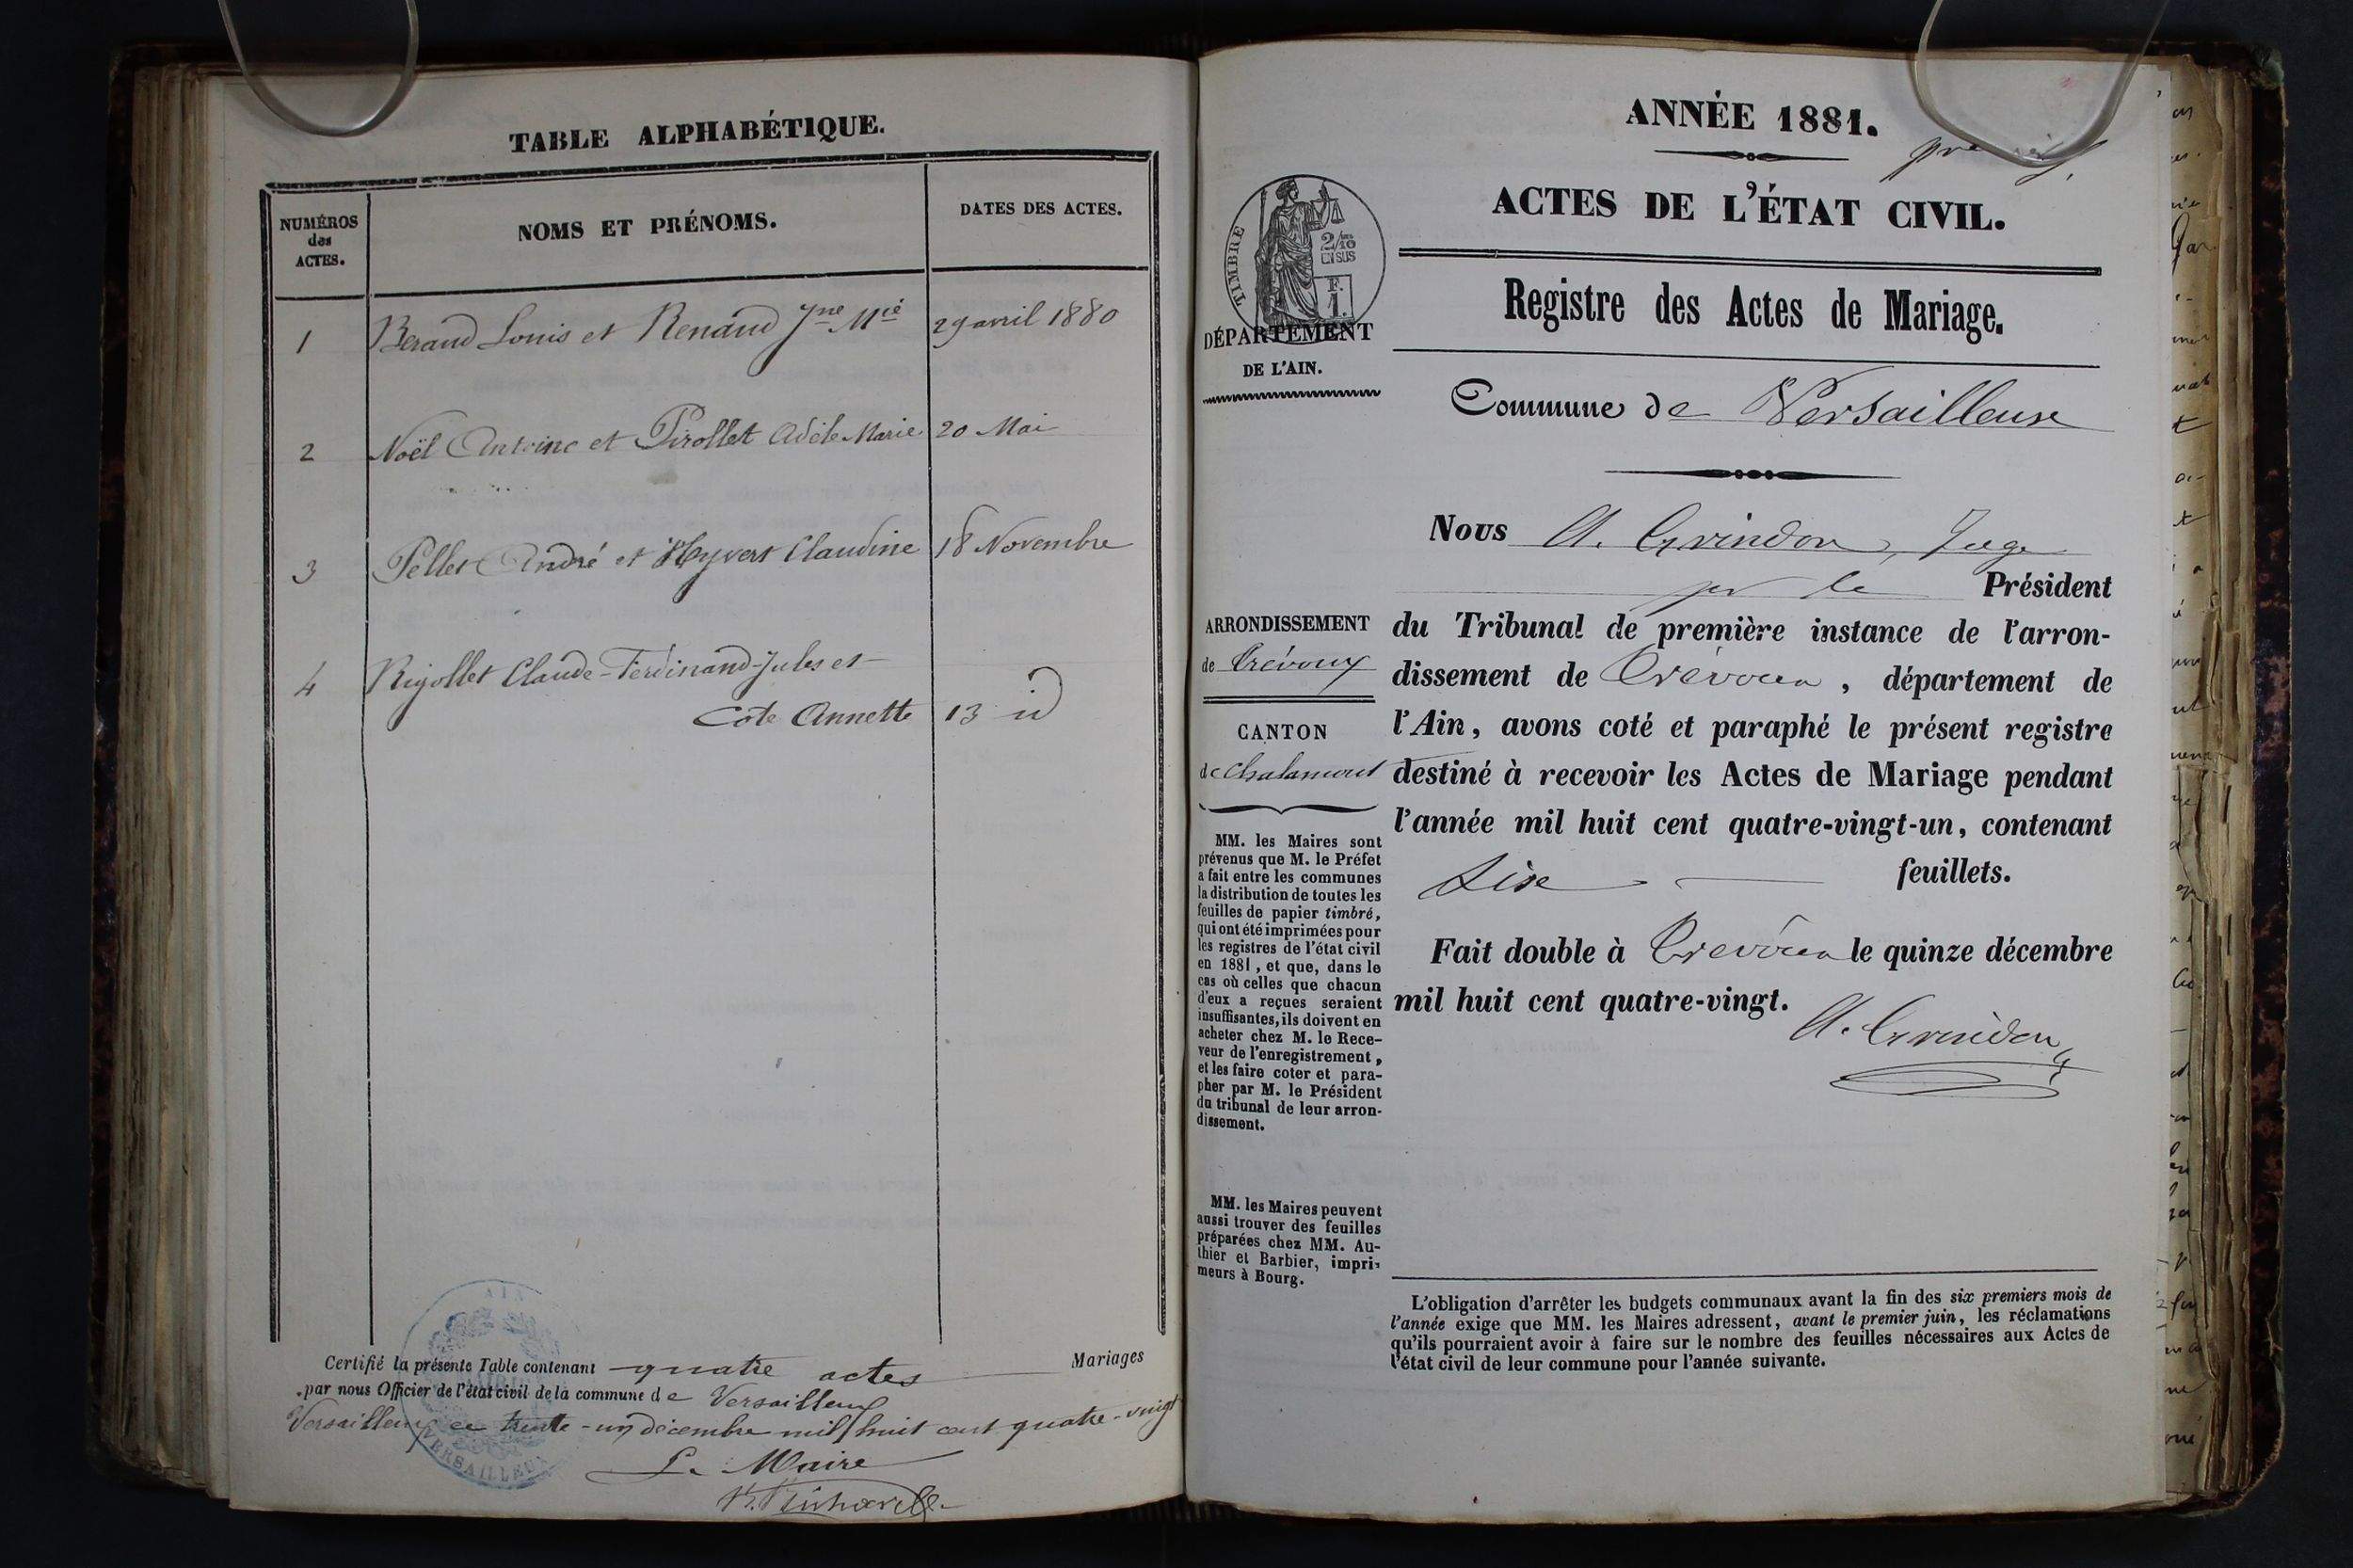 TABLE ALPHABÉTIQUE.
NUMÉROS
des
ACTES.
NOMS ET PRÉNOMS.
DATES DES ACTES.
1 Beraud Louis et Renaud Jne Mie 29 avril 1880
2 Noël Antoine et Pirollet Adèle Marie 20 Mai
3 Pellet André et Hyvert Claudine 18 Novembre
4 Rigollet Claude-Ferdinand-Jules et
Cote Annette 13 id
Certifié la présente Table contenant quatre actes Mariages
par nous Officier de l'état civil de la commune de Versailleux
Versailleux ce trente-un décembre mil huit cent quatre-vingt
Le Maire
AIN
VERSAILLEUX
ANNÉE 1881.
ACTES DE L'ÉTAT CIVIL.
TIMBRE
2/10
EN SUS
F.
1.
DÉPARTEMENT
DE L'AIN.
Registre des Actes de Mariage.
Commune de Versailleux
Nous A. Grindon, Juge
pr le Président
du Tribunal de première instance de l'arron-
dissement de Trévoux, département de
l'Ain, avons coté et paraphé le présent registre
destiné à recevoir les Actes de Mariage pendant
l'année mil huit cent quatre-vingt-un, contenant
Six feuillets.
Fait double à Trévoux le quinze décembre
mil huit cent quatre-vingt.
A. Grindon
ARRONDISSEMENT
de Trévoux
CANTON
de Chalamont
MM. les Maires sont
prévenus que M. le Préfet
a fait entre les communes
la distribution de toutes les
feuilles de papier timbré,
qui ont été imprimées pour
les registres de l'état civil
en 1881, et que, dans le
cas où celles que chacun
d'eux a reçues seraient
insuffisantes, ils doivent en
acheter chez M. le Rece-
veur de l'enregistrement,
et les faire coter et para-
pher par M. le Président
du tribunal de leur arron-
dissement.
MM. les Maires peuvent
aussi trouver des feuilles
préparées chez MM. Au-
thier et Barbier, impri-
meurs à Bourg.
L'obligation d'arrêter les budgets communaux avant la fin des six premiers mois de
l'année exige que MM. les Maires adressent, avant le premier juin, les réclamations
qu'ils pourraient avoir à faire sur le nombre des feuilles nécessaires aux Actes de
l'état civil de leur commune pour l'année suivante.